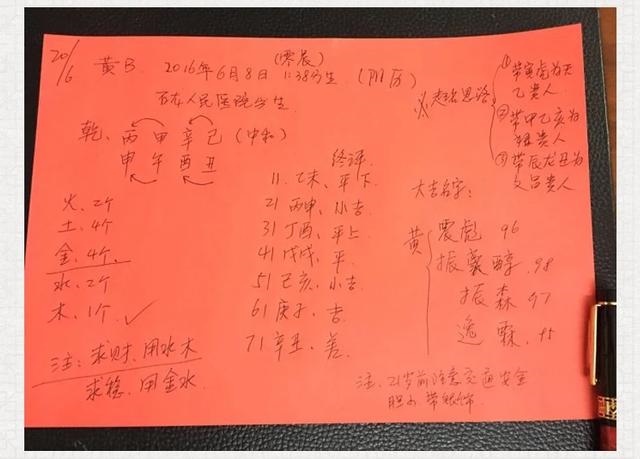 20/6
黄B. 2016年6月8日 1:38分生 (阳历)
(零晨)
石龙人民医院出生
乾、丙 甲 辛 己 (中和)
申 午 酉 丑
火、2个
土、4个
金、4个、
水、2个
木、1个 ✓
注: 求财、用水木
求稳、用金水
终评、
11、乙未、平下
21、丙申、小吉
31、丁酉、平上
41、戊戌、平、
51、己亥、小吉
61、庚子、吉
71、辛丑、差
起名思路
①带寅虎为天
乙贵人
②带甲乙亥为
贵人
③带辰龙丑为
文昌贵人
大吉名字:
黄
震彪 96
振醇、98
振森 97
逸霖、95
注、21岁前注意交通安全
胆小 带银饰